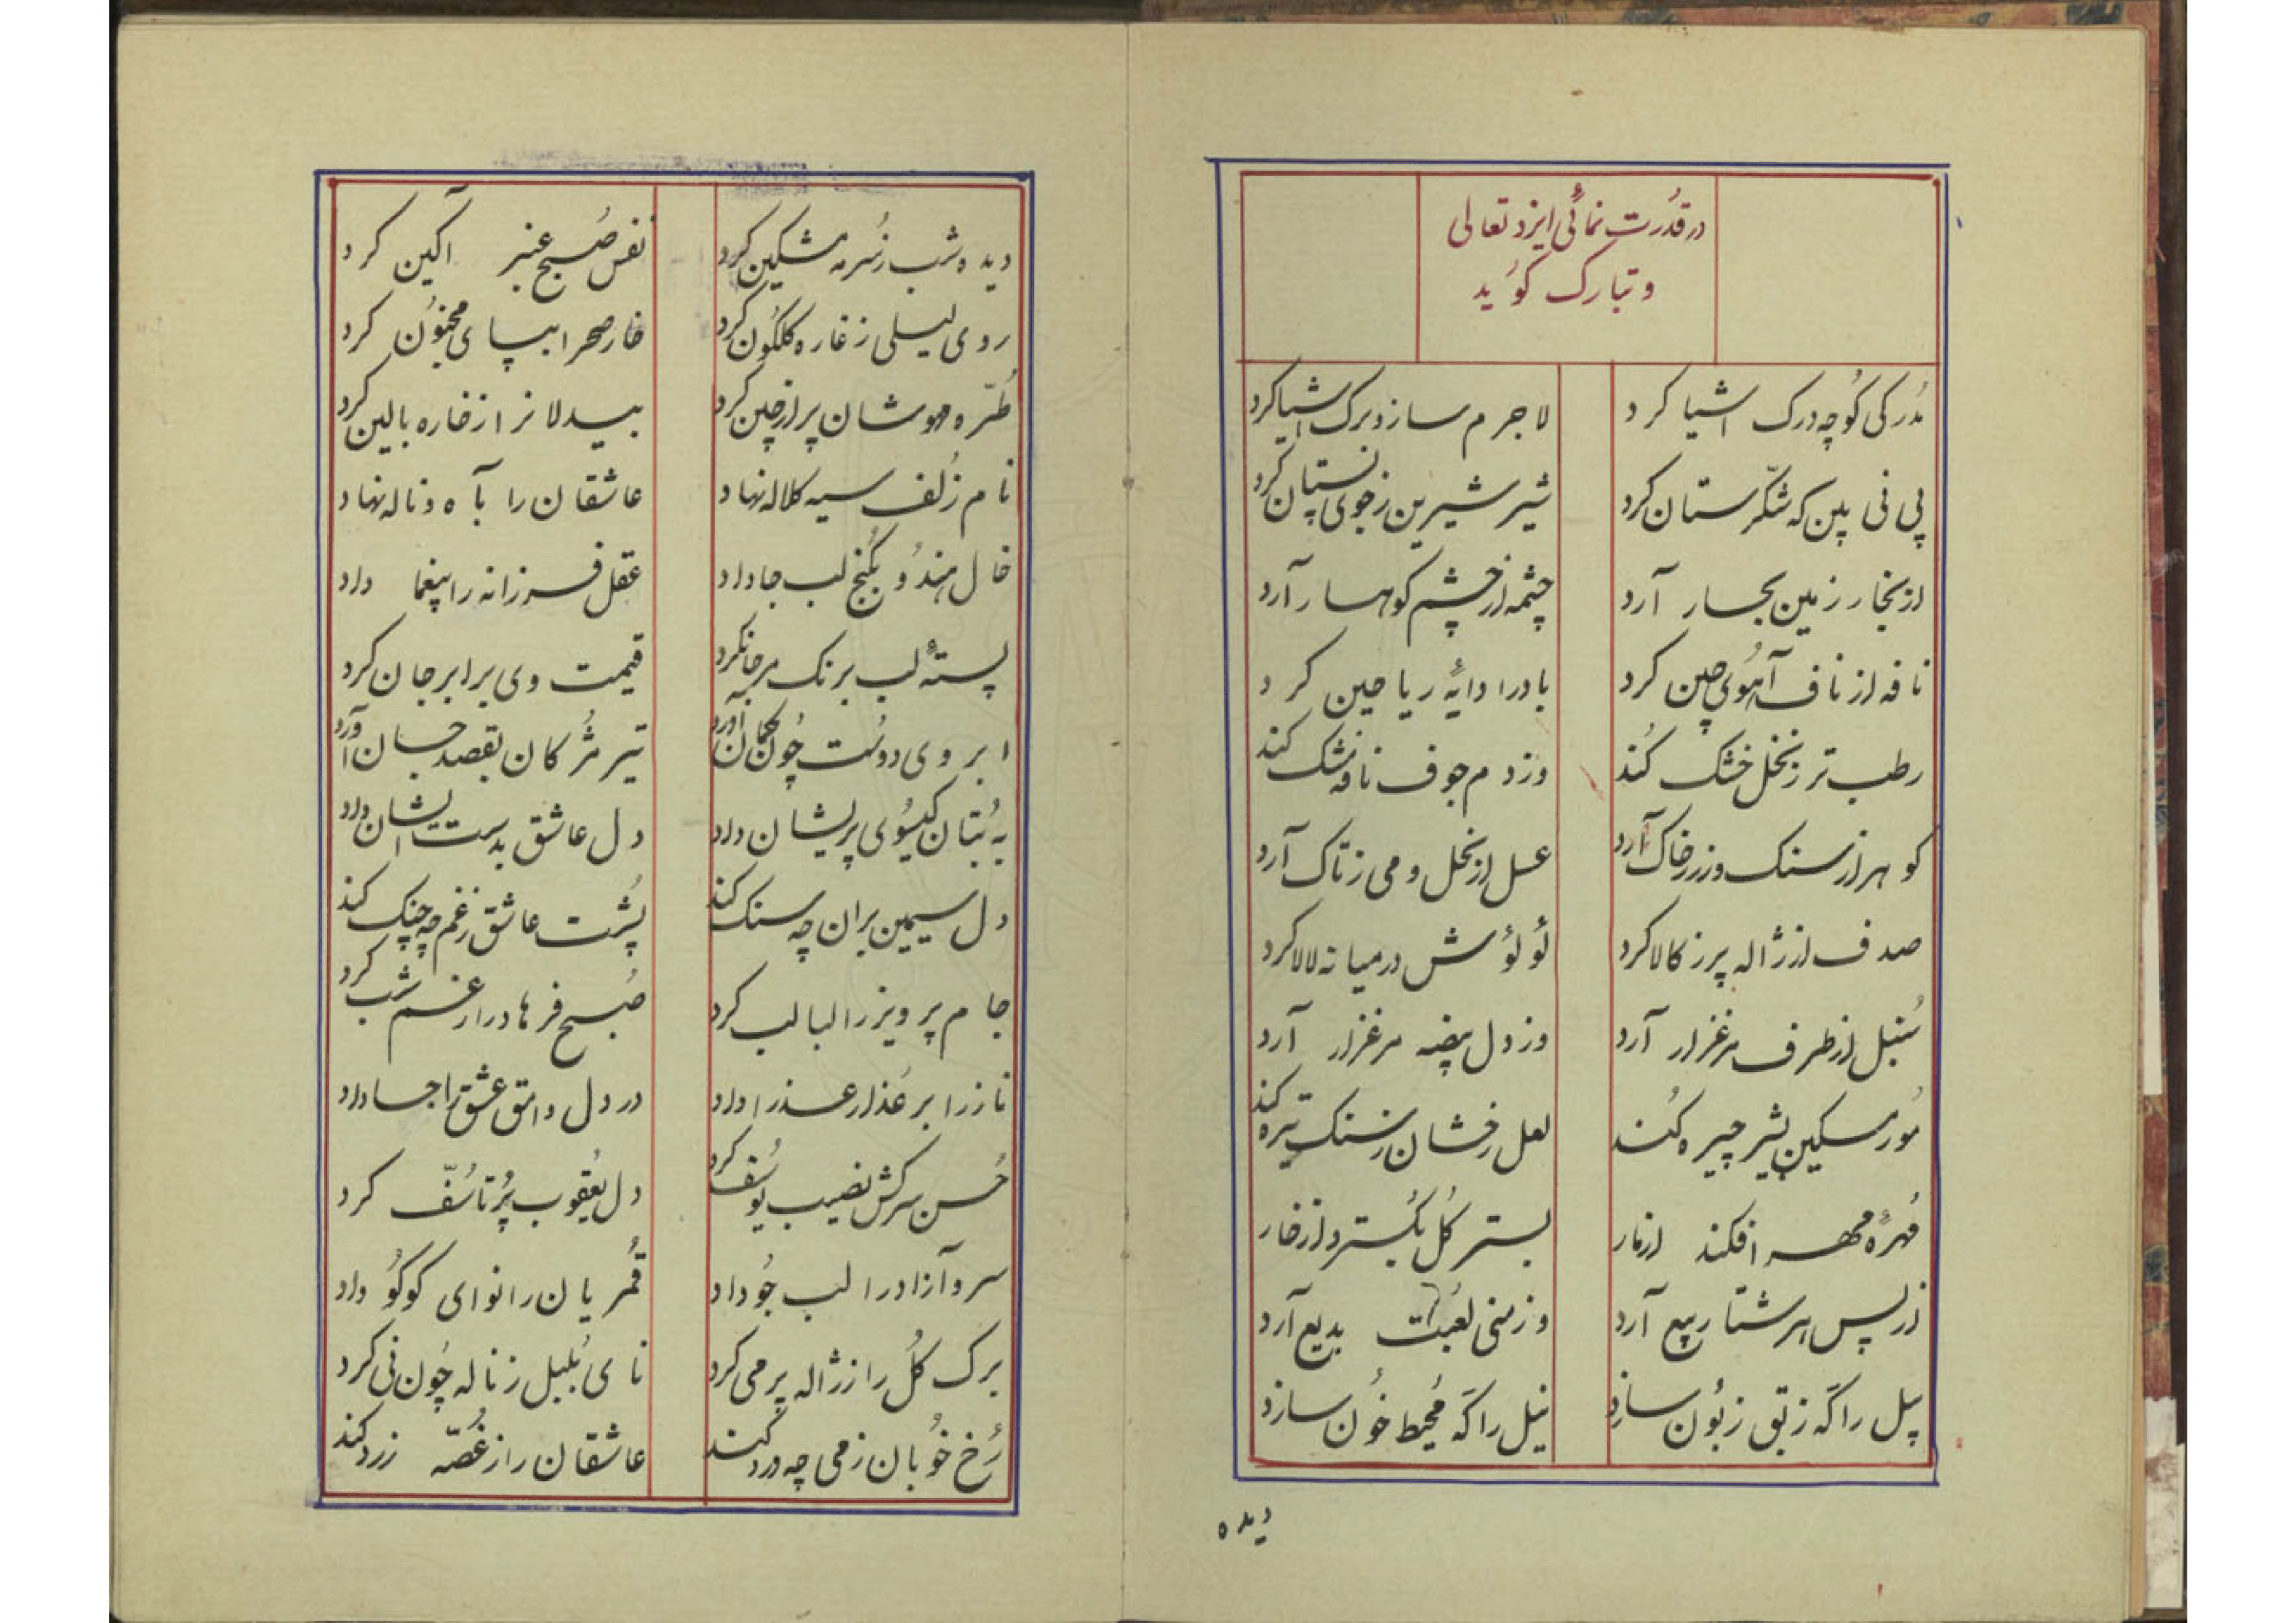 در قدرت نمائی ایزد تعالی
و تبارک کوید
مُدرکی کُو چه درک اشیا کرد
لاجرم ساز و برک اشیا کرد
پی نی بین که شکّرستان کرد
شیر شیرین ز جوی پستان کرد
از بخار زمین بحار آرد
چشمه از چشم کوهسار آرد
نافه از ناف آهُوی چین کرد
باد را دایهٔ ریاحین کرد
رطب تر ز نخل خشک کُند
وز دم جوف نافه مشک کند
کوهر از سنک و زر ز خاک آرد
عسل از نخل و می ز تاک آرد
صدف از ژاله پر ز کالا کرد
لُولُوش در میانه لالا کرد
سُنبل از طرف مرغزار آرد
وز دل بیضه مرغ زار آرد
مُور مسکین بشیر چیره کُند
لعل رخشان ز سنک تیره کند
مُهرهٔ مهر افکند از مار
بستر کُل بکُسترد از خار
از پس هر شتا ربیع آرد
وز منی لعُبت بدیع آرد
پیل را که ز بق زبُون سازد
نیل را که مُحیط خُون سازد
دیده
دیده شب ز سُرمه مشکین کرد
نفس صُبح عنبر آکین کرد
روی لیلی ز غازه کلکُون کرد
خار صحرا بپای مجنوُن کرد
طُرّه مهوشان پر از چین کرد
بیدلانرا ز خاره بالین کرد
نام زُلف سیه کلاله نهاد
عاشقان را بآه و ناله نهاد
خال هندُو بکُنج لب جا داد
عقل فرزانه را بیغما داد
پستهٔ لب برنک مرجانکرد
قیمت وی برابر جان کرد
ابروی دوست چُون کمان آورد
تیر مژکان بقصد جان آورد
به بُتان کیسُوی پریشان داد
دل عاشق بدست ایشان داد
دل سیمین بران چه سنک کند
پُشت عاشق ز غم چه چنک کند
جام پرویز را لبالب کرد
صُبح فرهاد را ز غم شب کرد
ناز را بر عُذار عذرا داد
در دل وامق عشق را جا داد
حُسن سرکش نصیب یوسُف کرد
دل یعُقوب پُر تاسُفّ کرد
سرو آزاد را لب جُو داد
قُمریان را نوای کوکُو داد
برک کُل را ز ژاله پر می کرد
نای بُلبل ز ناله چُون نی کرد
رُخ خُوبان ز می چه ورد کند
عاشقان را ز غُصّه زرد کند